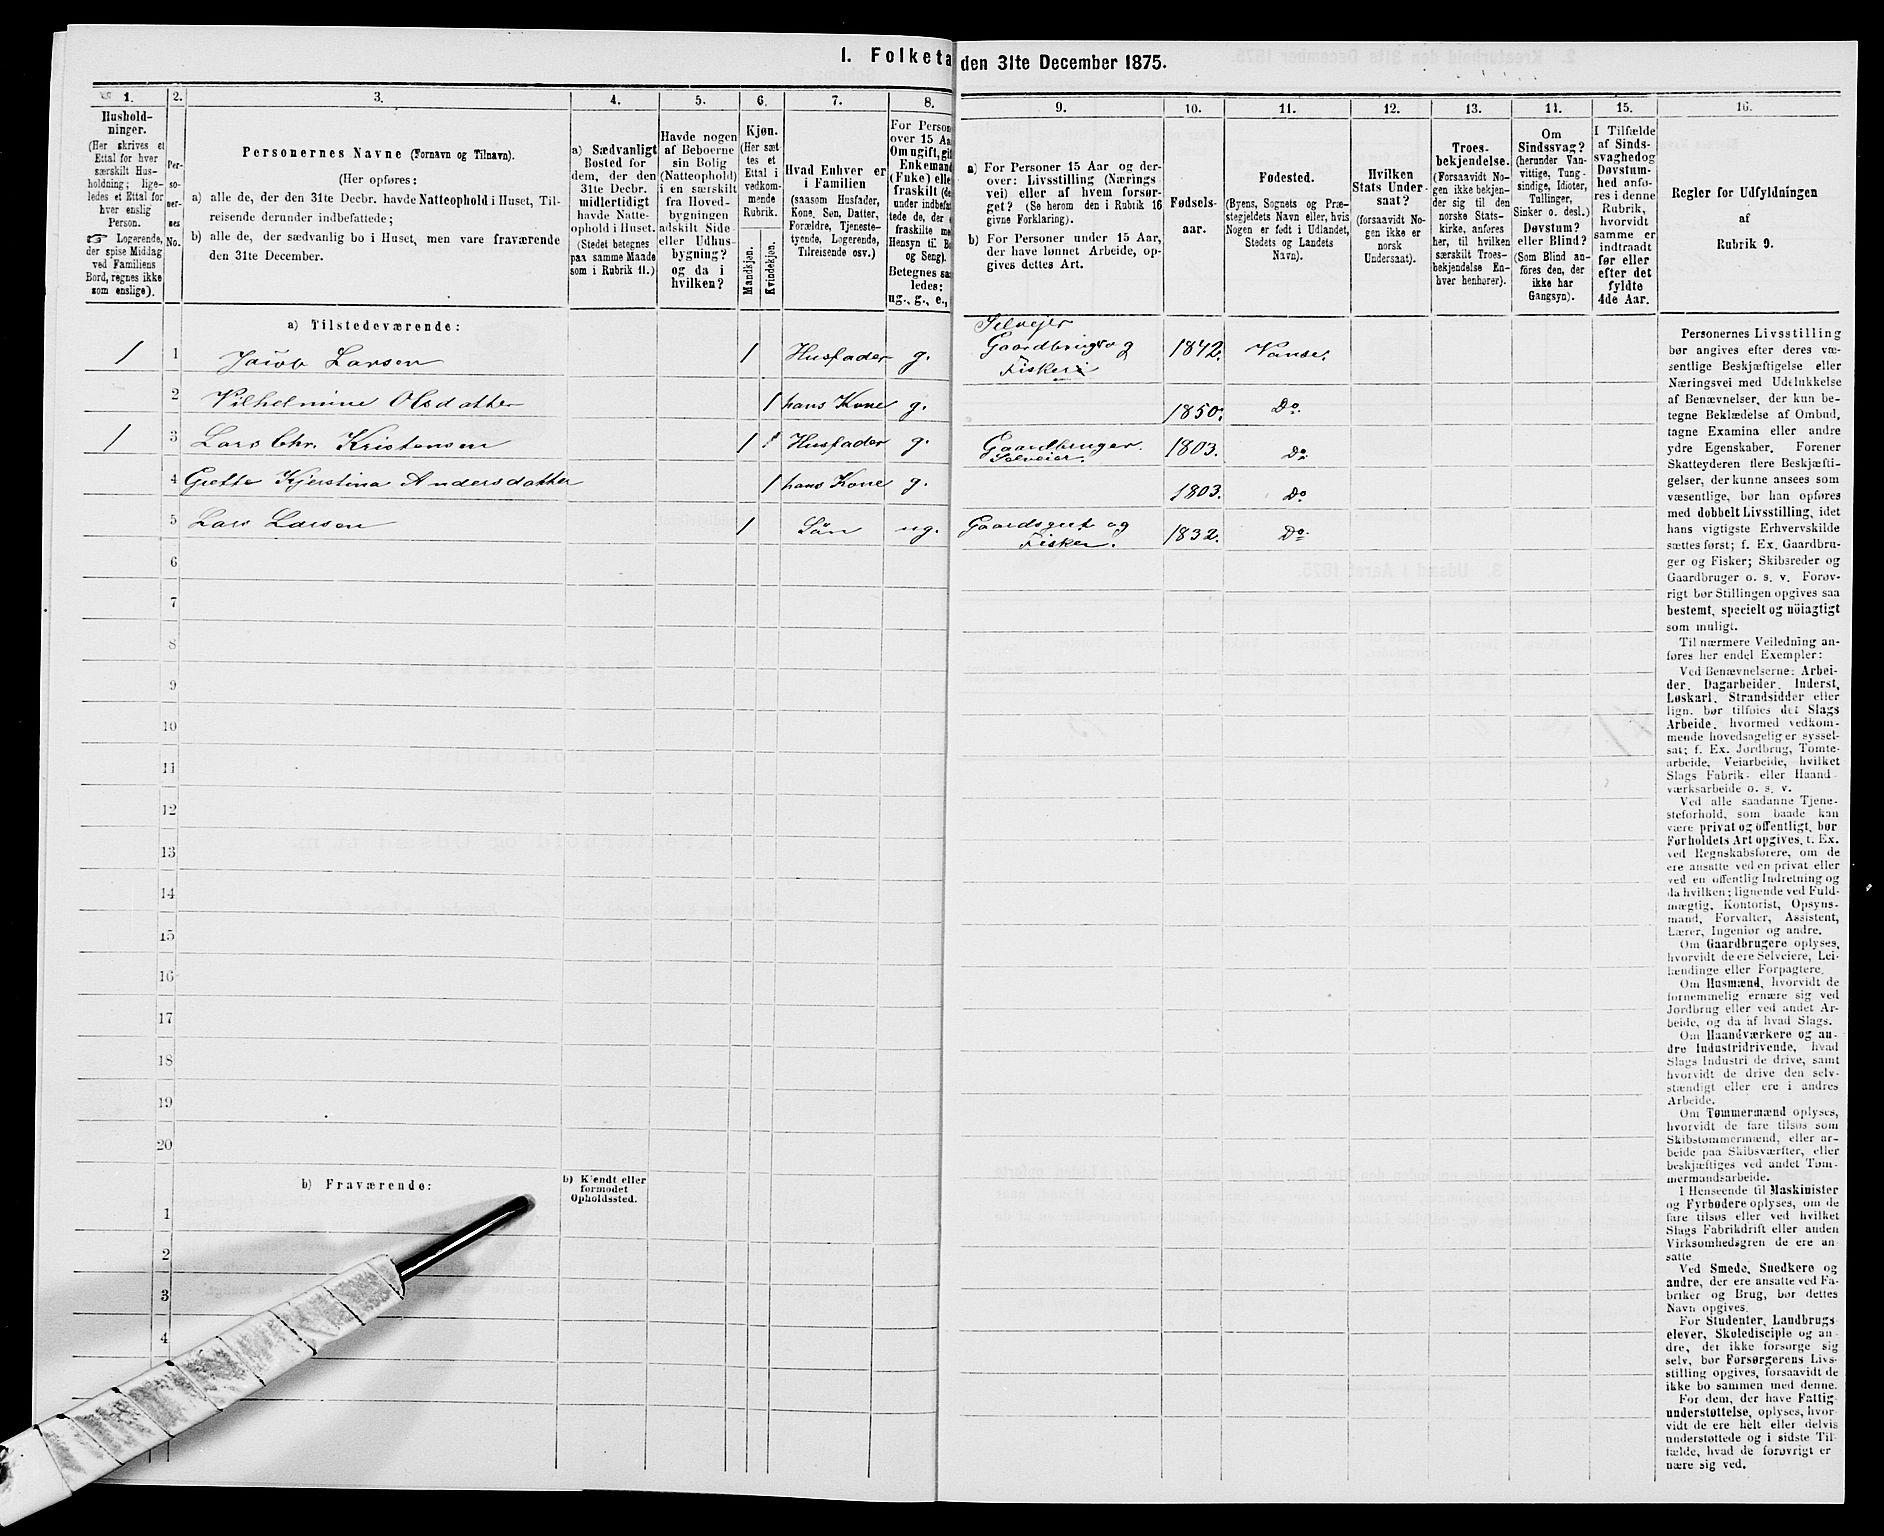 I. Folketa den 31te December 1875.
1. 2. 3. 4. 5. 6. 7. 8. 9. 10. 11. 12. 13. 14. 15. 16.
Hushold-
ninger.
(Her skrives et
Ettal for hver
særskilt Hus-
holdning; lige-
ledes et Ettal for
hver enslig
Person.
☞ Logerende,
der spise Middag
ved Familiens
Bord, regnes ikke
som enslige).
Per-
so-
ner-
nes
No.
Personernes Navne (Fornavn og Tilnavn).
(Her opføres:
a) alle de, der den 31te Decbr. havde Natteophold i Huset, Til-
reisende derunder indbefattede;
b) alle de, der sædvanlig bo i Huset, men vare fraværende
den 31te December.
a) Sædvanligt
Bosted for
dem, der den
31te Decbr.
midlertidigt
havde Natte-
ophold i Huset.
(Stedet betegnes
paa samme Maade
som i Rubrik 11.)
Havde nogen
af Beboerne
sin Bolig
(Natteophold)
i en særskilt
fra Hoved-
bygningen
adskilt Side-
eller Udhus-
bygning?
og da i
hvilken?
Kjøn.
(Her sæt
tes et
Ettal i
vedkom-
mende
Rubrik.
Mandkjøn.
Kvindekjøn.
Hvad Enhver er
i Familien
(saasom Husfader,
Kone, Søn, Datter,
Forældre, Tjeneste-
tyende, Logerende,
Tilreisende osv.)
For Person
over 15 Aa
Om ugift, gif
Enkemand
(Fuke) elle
fraskilt (de
under indbefat
tede de, der e
fraskilte me
Hensyn til Bo
og Seng).
Betegnes saa
ledes:
ug., g., e.,
a) For Personer 15 Aar og der-
over: Livsstilling (Nærings
vei) eller af hvem forsør-
get? (Se herom den i Rubrik 16
givne Forklaring).
b) For Personer under 15 Aar,
der have lønnet Arbeide, op-
gives dettes Art.
Fødsels-
aar.
Fødested.
(Byens, Sognets og Præ-
stegjeldets Navn eller, hvis
Nogen er født i Udlandet,
Stedets og Landets
Navn).
Hvilken
Stats Under-
saat?
(forsaavidt No-
gen ikke er
norsk
Undersaat).
Troes-
bekjendelse.
(Forsaavidt No-
gen ikke bekjen-
der sig til den
norske Stats-
kirke, anføres
her, til hvilken
særskilt Troes-
bekjendelse En-
hver henhører).
Om
Sindssvag?
(herunder Van-
vittige, Tung-
sindige, Idioter,
Tullinger,
Sinker o. desl.)
Døvstum?
eller Blind?
(Som Blind an-
føres den, der
ikke har
Gangsyn).
I Tilfælde
af Sinds-
svaghed og
Døvstum-
hed anfø-
res i denne
Rubrik,
hvorvidt
samme er
indtraadt
før eller
efter det
fyldte
4de Aar.
Regler for Udfyldningen
af
Rubrik 9.
a) Tilstedeværende:
Selveier
1 1 Jacob Larsen 1 Husfader g. Gaardbrug og 1842. Vanse.
Fisker
2 Vilhelmine Olsdatter 1 hans Kone g. 1850. Do.
1 3 Lars Chr. Kristensen 1 Husfader g. Gaardbruger. 1803. Do
Selveier.
4 Grette Kjerstina Andersdatter 1 hans Kone g. 1803. Do
5 Lars Larsen 1 Søn ug. Gaardsgut og 1832. Do
Fisker.
6
7
8
9
10
11
12
13
14
15
16
17
18
19
20
b) Fraværende:
b) Kjendt eller
formodet
Opholdssted.
1
2
3
4
Personernes Livsstilling
bør angives efter deres væ-
sentlige Beskjæftigelse eller
Næringsvei med Udelukkelse
af Benævnelser, der kun be-
tegne Beklædelse af Ombud,
tagne Examina eller andre
ydre Egenskaber. Forener
Skatteyderen flere Beskjæfti-
gelser, der kunne ansees som
væsentlige, bør han opføres
med dobbelt Livsstilling, idet
hans vigtigste Erhvervskilde
sættes først; f. Ex. Gaardbru-
ger og Fisker; Skibsreder og
Gaardbruger o. s. v. Forøv-
rigt bør Stillingen opgives saa
bestemt, specielt og nöiagtigt
som muligt.
Til nærmere Veiledning an-
føres her endel Exempler:
Ved Benævnelserne: Arbei-
der, Dagarbeider, Inderst,
Løskarl, Strandsidder eller
lign. bør tilføies det Slags
Arbeide, hvormed vedkom-
mende hovedsagelig er syssel-
sat; f. Ex. Jordbrug, Tomte-
arbeide, Veiarbeide, hvilket
Slags Fabrik- eller Haand-
værksarbeide o. s. v.
Ved alle saadanne Tjene-
steforhold, som baade kan
være privat og offentligt, bør
Forholdets Art opgives, f. Ex.
ved Regnskabsførere, om de
ere ansatte ved en privat eller
ved en offentlig Indretning og
da hvilken; lignende ved Fuld-
mægtig, Kontorist, Opsyns-
mand, Forvalter, Assistent,
Lærer, Ingeniør og andre.
Om Gaardbrugere oplyses,
hvorvidt de ere Selveiere, Lei-
lændinge eller Forpagtere.
Om Husmænd, hvorvidt de
fornemmelig ernære sig ved
Jordbrug eller ved andet Ar-
beide, og da af hvad Slags.
Om Haandværkere og an-
dre Industridrivende, hvad
Slags Industri de drive, samt
hvorvidt de drive den selv-
stændigt eller ere i andres
Arbeide.
Om Tømmermænd oplyses,
hvorvidt de fare tilsøs som
Skibstømmermænd, eller ar-
beide paa Skibsværfter, eller
beskjæftiges ved andet Tøm-
mermandsarbeide.
I Henseende til Maskinister
og Fyrbødere oplyses, om de
fare tilsøs eller ved hvilket
Slags Fabrikdrift eller anden
Virksomhedsgren de ere an-
satte
Ved Smede, Snedkere og
andre, der ere ansatte ved Fa-
briker og Brug, bør dettes
Navn opgives.
For Studenter, Landbrugs
elever, Skoledisciple og an-
dre, der ikke forsørge sig
selv, bør Forsørgerens Livs-
stilling opgives, forsaavidt de
ikke bo sammen med denne.
For dem, der have Fattig-
understøttelse, oplyses, hvor-
vidt de ere helt eller delvis
understøttede og i sidste Til-
fælde, hvad de forøvrigt er
nære sig ved.